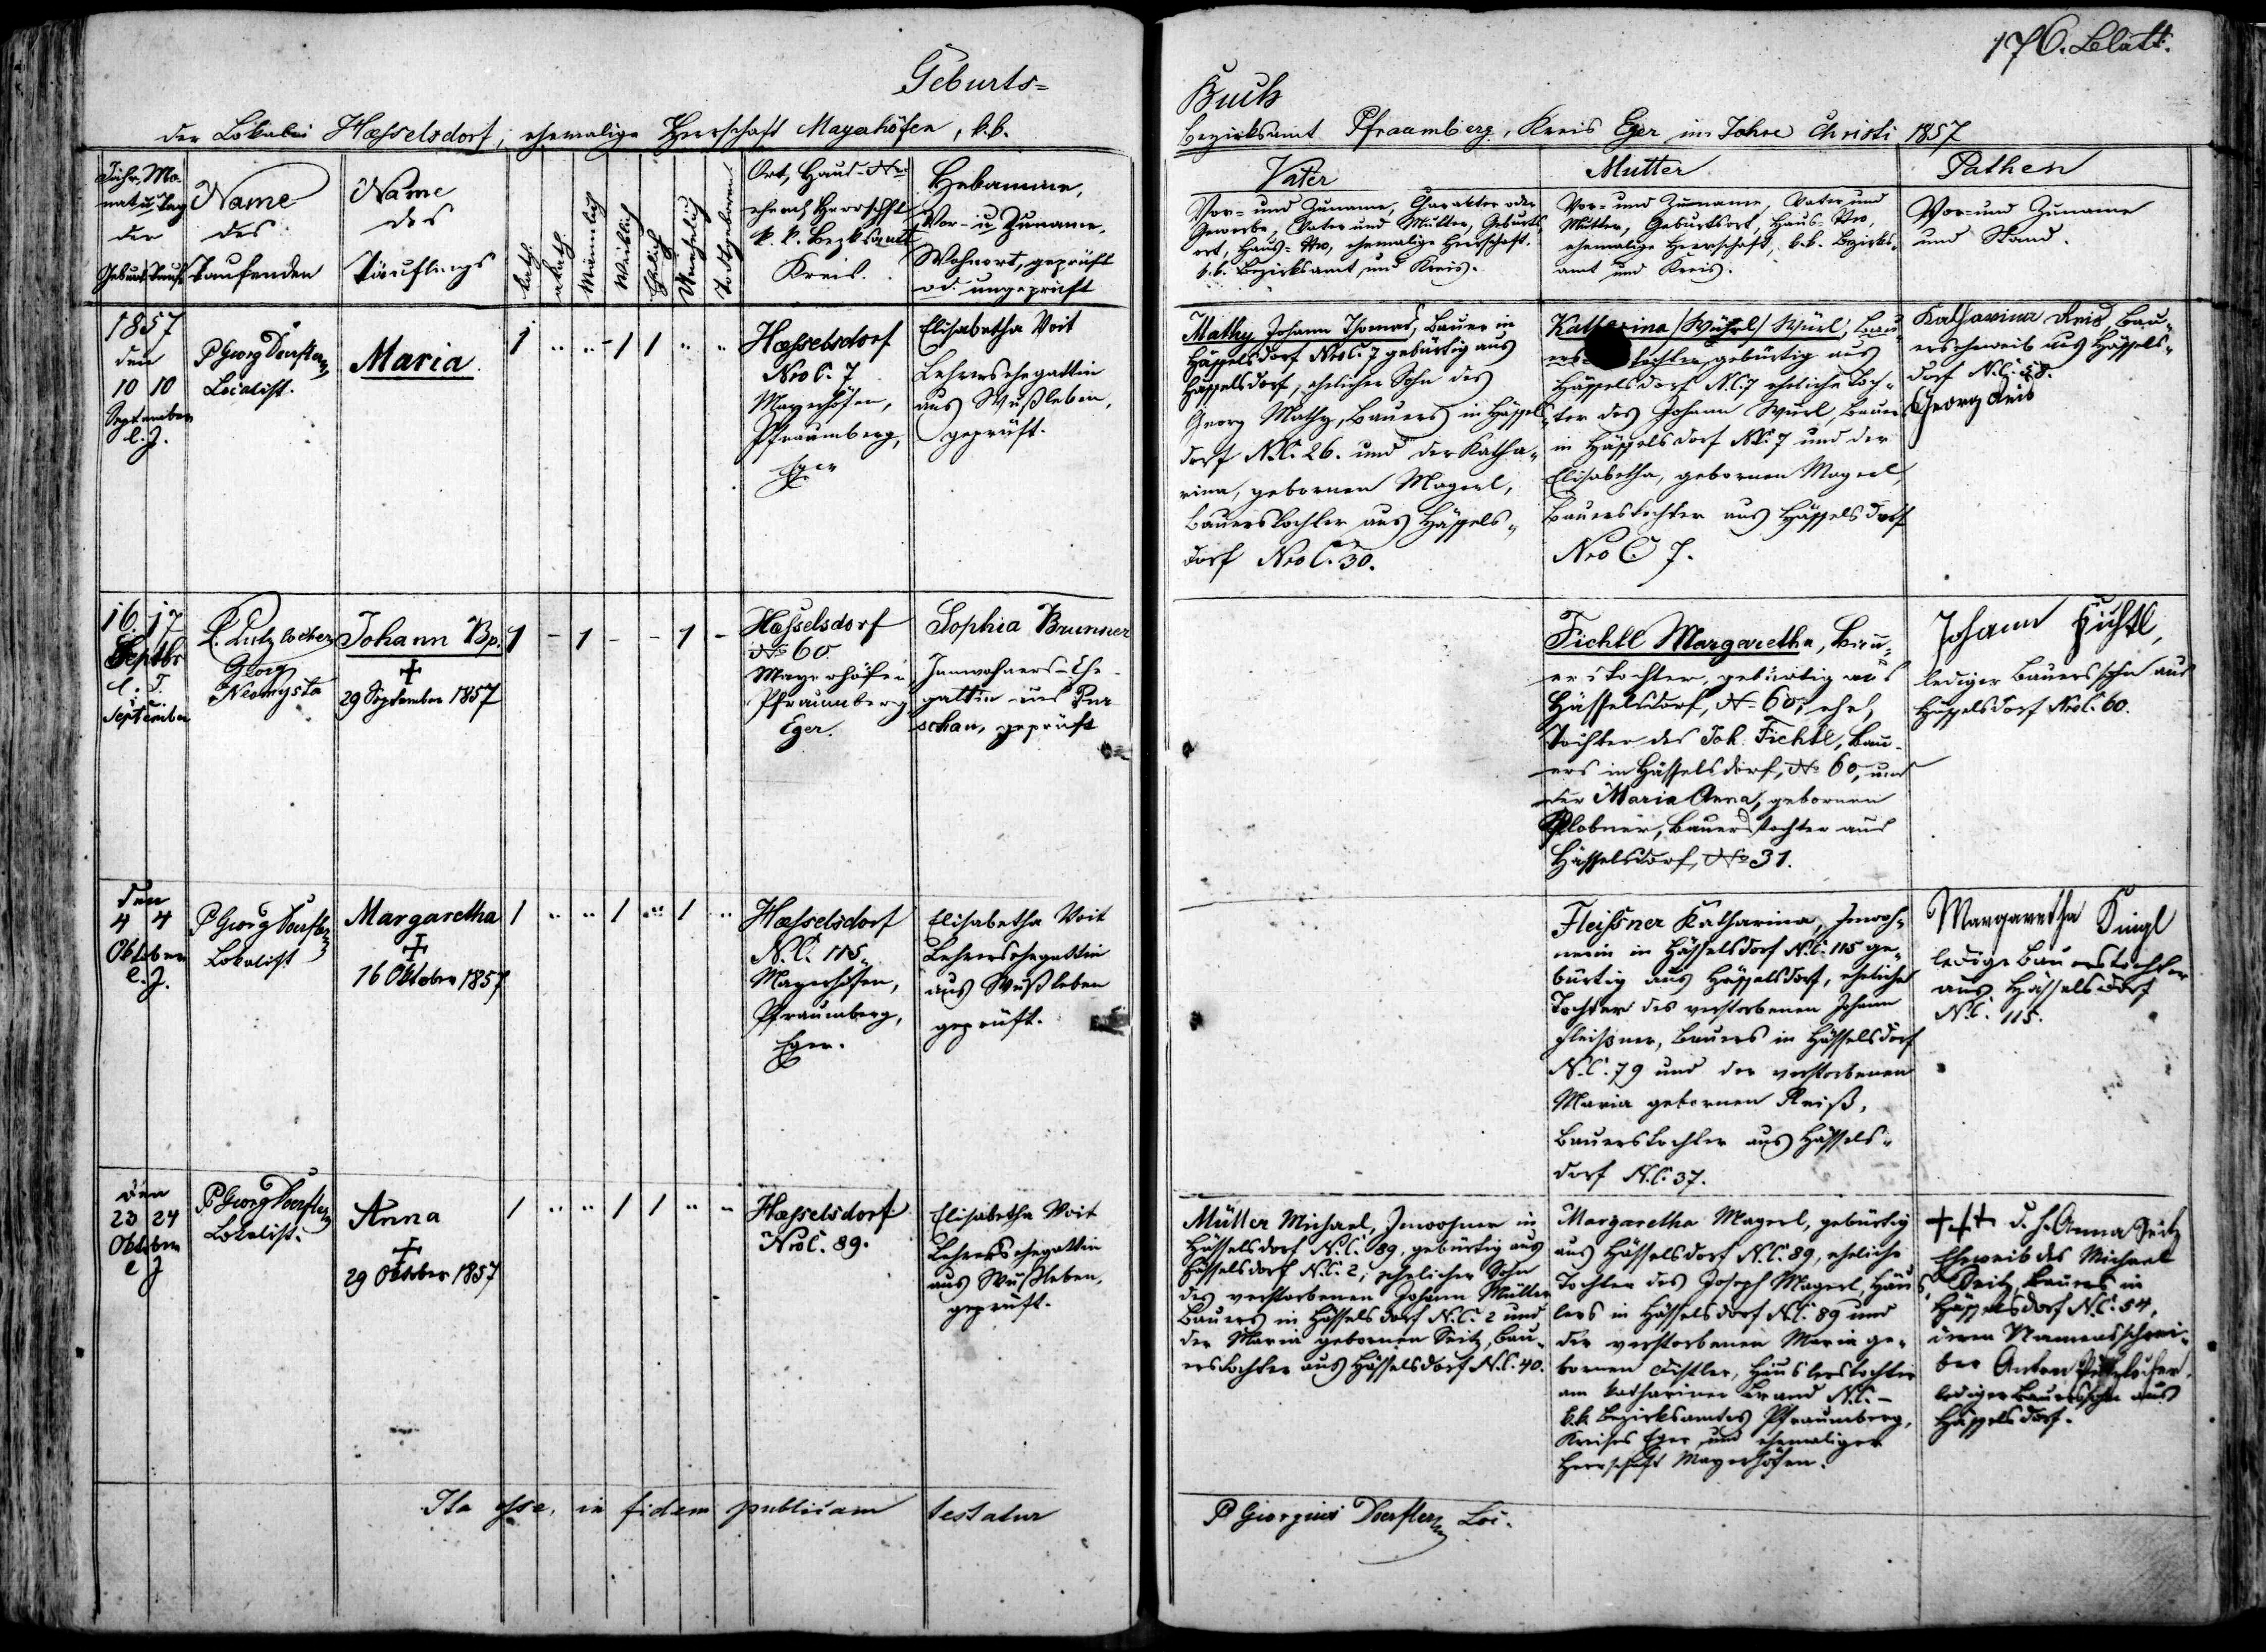 176. Blatt.
Geburts-
Buch
der Lokalie Hesselsdorf, ehemalige Herrschaft Mayerhöfen, k. k.
Bezirksamt Pfraumberg, Kreis Eger im Jahre Christi 1857
Jahr, Mo-
nat u Tag
der
Geburt Taufe
Name
des
Taufenden
Name
des
Täuflings
kath.
akath.
Männlich
Weiblich
Ehelich
Unehelich
Todtgeboren
Ort, Haus-Nro
ehemal Herrschft
k. k. Bezksamt
Kreis.
Hebamme,
Vor- u Zuname,
Wohnort, geprüft
od. ungeprüft
Vater
Vor- und Zuname, Charakter oder
Gewerbe, Vater und Mutter, Geburts
ort, Haus-Nro, ehemalige Herrschaft,
k. k. Bezirksamt und Kreis.
Mutter
Vor- und Zuname, Vater und
Mutter, Geburtsort, Haus-Nro,
ehemalige Herrschaft, k. k. Bezirks-
amt und Kreis.
Pathen
Vor- und Zuname
und Stand.
1857
den
10 10
September
l. J.
P Georg Doerfler
Localist.
Maria
1 .. .. - 1 1 .. ..
Hesselsdorf
Nro C. 7
Mayerhöfen,
Pfraumberg,
Eger
Elisabetha Voit
Lehrersehegattin
aus Wußleben,
geprüft.
Mathy Johann Thomas, Bauer in
Hässelsdorf Nro C. 7 gebürtig aus
Hässelsdorf, ehelicher Sohn des
Georg Mathy, Bauers in Hässels
dorf N.C. 26. und der Katha-
rina, gebornen Magerl,
Bauerstochter aus Hässels-
dorf Nro C. 30.
Katharina /Wührl/ Würl, Bau
ers tochter, gebürtig aus
Hässelsdorf N.C. 7 eheliche Toch-
ter des Johann Würl, Bauers
in Hässelsdorf N.C. 7 und der
Elisabetha, gebornen Magerl,
Bauerstochter aus Hässelsdorf
Nro C. 7.
Katharina Reis, Bau-
erseheweib aus Hässels-
dorf N.C. 58.
Georg Reis
16. 17
Septbr
l. J.
September
P.
Georg
Johann Bp.
+
29 September 1857
1 - 1 - - 1 -
Hesselsdorf
No 60
Mayerhöfen
Pfraumberg
Eger.
Sophia Brunner
Innwohners-Ehe-
gattin aus Pur-
schau, geprüft
Fichtl Margaretha, Bau-
erstochter, gebürtig aus
Hässelsdorf, No 60, ehel.
Tochter des Joh. Fichtl, Bau-
ers in Hässelsdorf, No 60, und
der Maria Anna, gebornen
Plobner, Bauerstochter aus
Hässelsdorf, No 31.
Johann Fichtl,
lediger Bauerssohn aus
Hässelsdorf Nro C. 60.
den
4 4
Oktober
l. J.
P Georg Doerfler
Lokalist
Margaretha
+
16 Oktober 1857
1 .. .. 1 .. 1 ..
Hesselsdorf
N.C. 115,
Mayerhöfen,
Pfraumberg,
Eger.
Elisabetha Voit
Lehrersehegattin
aus Wußleben
geprüft.
Fleißner Katharina, Inwoh-
nerin in Hässelsdorf N.C. 115 ge-
bürtig aus Hässelsdorf, eheliche
Tochter des verstorbenen Johann
Fleißner, Bauers in Hässelsdorf
N.C. 79 und der verstorbenen
Maria gebornen Reiß,
Bauerstochter aus Hässels-
dorf N.C. 37.
Margaretha
ledige Bauerstochter
aus Hässelsdorf
N.C. 115.
den
23 24
Oktober
l J
P Georg Doerfler
Lokalist.
Anna
+
29 Oktober 1857
1 .. .. 1 1 .. ..
Hesselsdorf
Nro C. 89.
Elisabetha Voit
Lehrersehegattin
aus Wußleben,
geprüft.
Müller Michael, Inwohner in
Hässelsdorf N.C. 89, gebürtig aus
Hässelsdorf N.C. 2, ehelicher Sohn
des verstorbenen Johann Müller
Bauers in Hässelsdorf N.C. 2 und
der Maria gebornen Seitz, Bau-
erstochter aus Hässelsdorf N.C. 40.
Margaretha Magerl, gebürtig
aus Hässelsdorf N.C. 89, eheliche
Tochter des Joseph Magerl, Häus
lers in Hässelsdorf N.C. 89 und
der verstorbenen Maria ge-
bornen Distler, Häuslerstochter
am Kathariner Brand N.C. -
k. k. Bezirksamtes Pfraumberg,
Kreises Eger und ehemaliger
Herrschaft Mayerhöfen.
+++ d. h. Anna Seitz
Eheweib des Michael
Seitz, Bauers in
Hässelsdorf N.C. 54,
deren Namensschrei-
ber Anton
lediger Bauerssohn aus
Hässelsdorf.
Ita esse, in fidem publicam testatur
P Georgius Doerfler Loc.